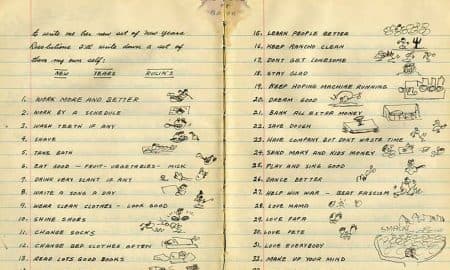 to write me her new set of New Years
Resolutions I'll write down a set of
them my own self:
NEW YEARS RULIN'S
1. WORK MORE AND BETTER
2. WORK BY A SCHEDULE
3. WASH TEETH IF ANY
4. SHAVE
5. TAKE BATH
6. EAT GOOD - FRUIT - VEGETABLES - MILK
7. DRINK VERY SCANT IF ANY
8. WRITE A SONG A DAY
9. WEAR CLEAN CLOTHES - LOOK GOOD
10. SHINE SHOES
11. CHANGE SOCKS
12. CHANGE BED CLOTHES OFTEN
13. READ LOTS GOOD BOOKS
15. LEARN PEOPLE BETTER
16. KEEP RANCHO CLEAN
17. DONT GET LONESOME
18. STAY GLAD
19. KEEP HOPING MACHINE RUNNING
20. DREAM GOOD
21. BANK ALL EXTRA MONEY
22. SAVE DOUGH
23. HAVE COMPANY BUT DONT WASTE TIME
24. SEND MARY AND KIDS MONEY
25. PLAY AND SING GOOD
26. DANCE BETTER
27. HELP WIN WAR - BEAT FASCISM
28. LOVE MAMA
29. LOVE PAPA
30. LOVE PETE
31. LOVE EVERYBODY
32. MAKE UP YOUR MIND